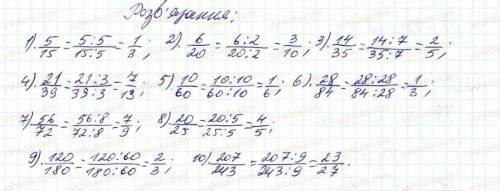 Розв'язання:
1). 5/15 = 5:5/15:5 = 1/3; 2). 6/20 = 6:2/20:2 = 3/10; 3). 14/35 = 14:7/35:7 = 2/5;
4). 21/39 = 21:3/39:3 = 7/13; 5). 10/60 = 10:10/60:10 = 1/6; 6). 28/84 = 28:28/84:28 = 1/3;
7). 56/72 = 56:8/72:8 = 7/9; 8). 20/25 = 20:5/25:5 = 4/5;
9). 120/180 = 120:60/180:60 = 2/3; 10). 207/243 = 207:9/243:9 = 23/27.